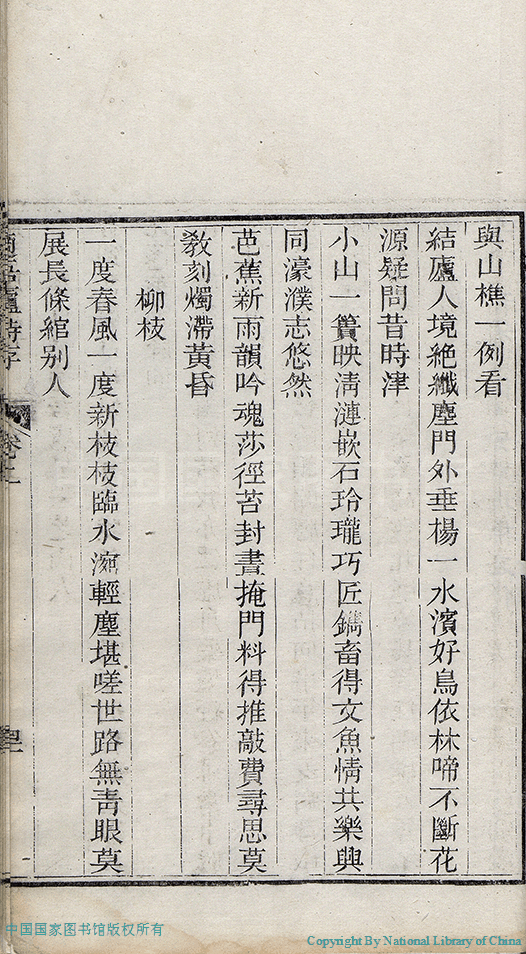 與山樵一例看
結廬人境絶纖塵門外垂楊一水濱好鳥依林啼不斷花
源疑問昔時津
小山一簣映清漣嵌石玲瓏巧匠鐫畜得文魚情共樂與
同濠濮志悠然
芭蕉新雨韻吟魂莎徑苔封晝掩門料得推敲費尋思莫
敎刻燭滯黃昏
柳枝
一度春風一度新枝枝臨水浣輕塵堪嗟世路無靑眼莫
展長條綰别人
廬詩存
卷上
中国国家图书馆版权所有
Copyright By National Library of China